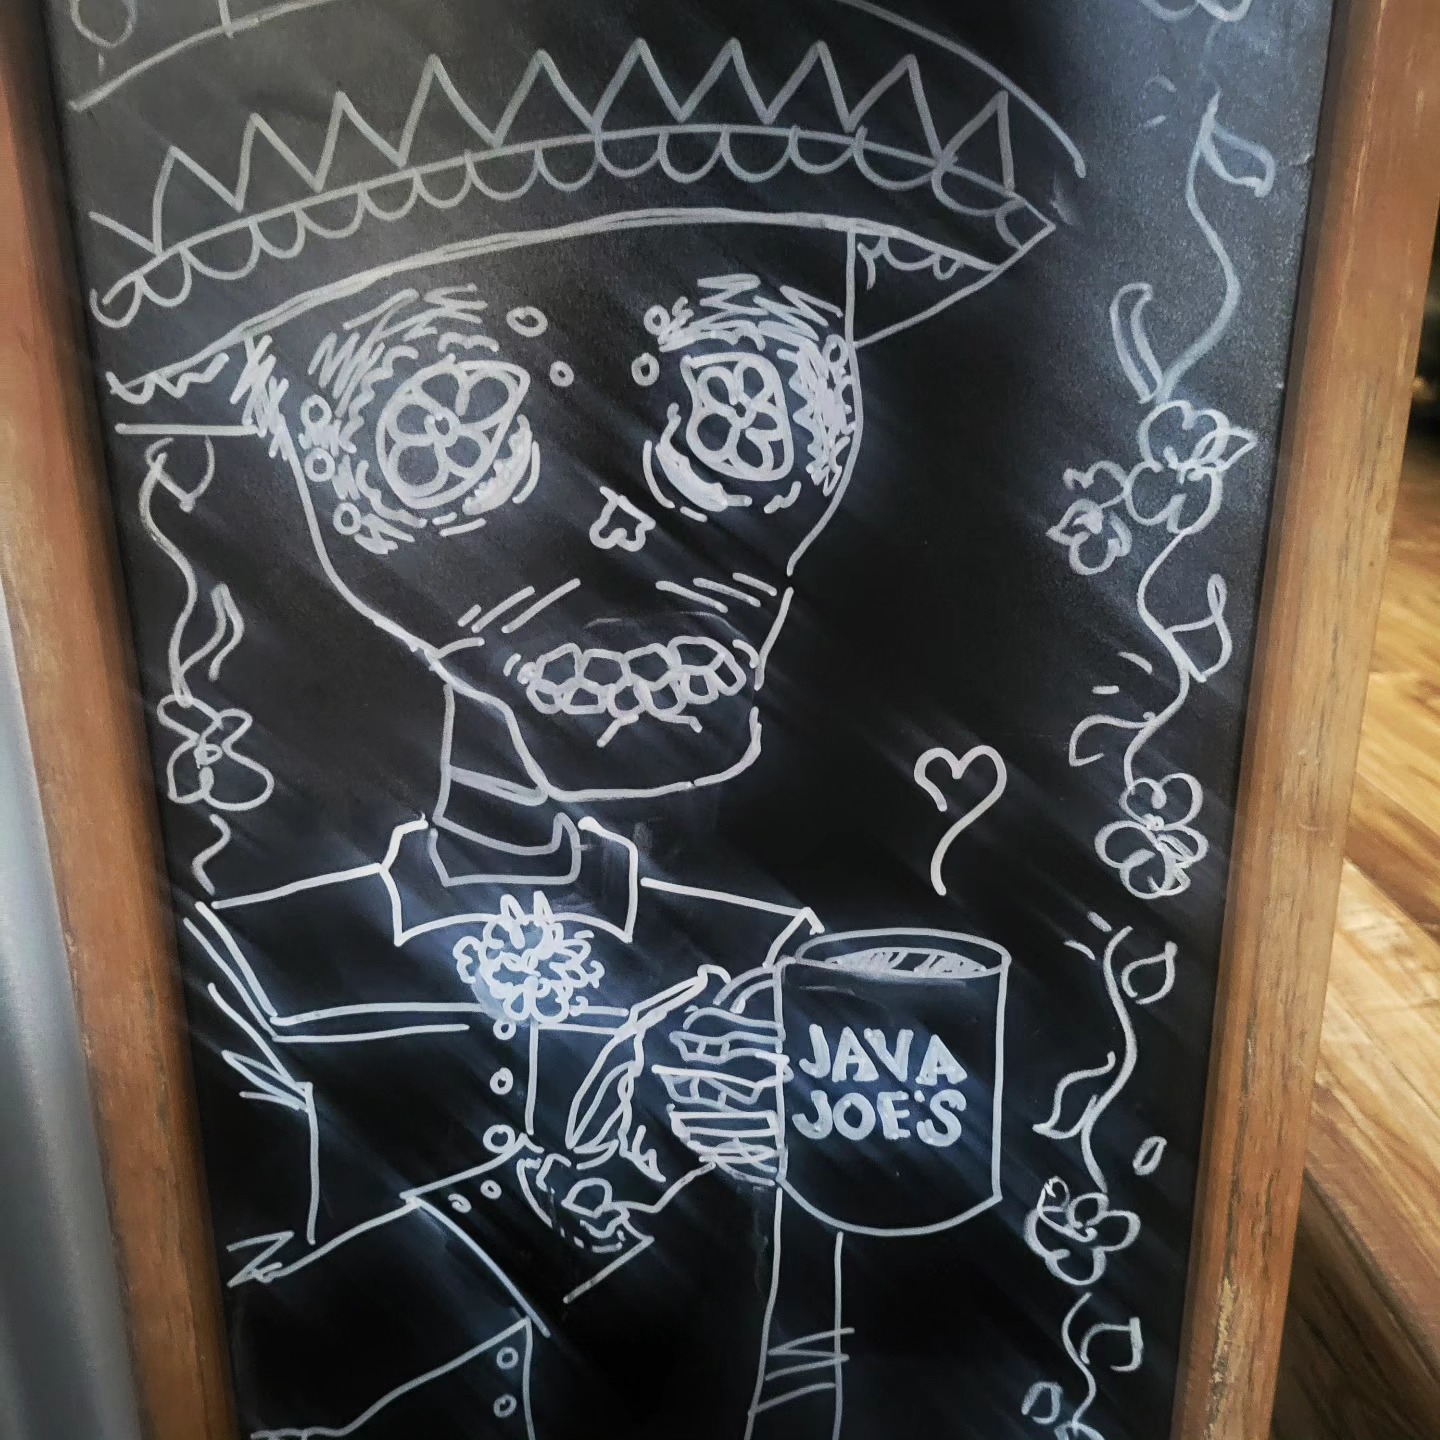 JAVA
JOE'S